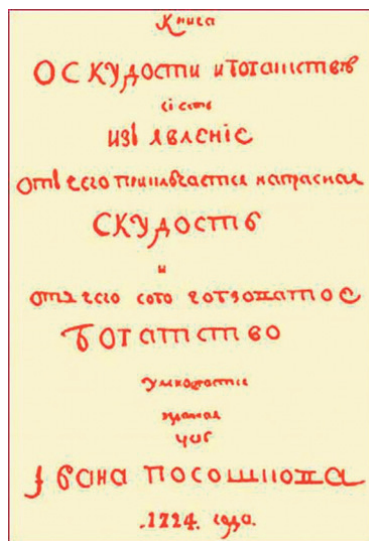 Книга
О СКУДОСТИ и БОГАТСТВЕ
сі есть
ИЗЪЯВЛЕНІЕ
отчего приключается напрасная
СКУДОСТЬ
и
отчего
БОГАТСТВО
умножается
Ивана ПОСОШКОВА
.1724. года.